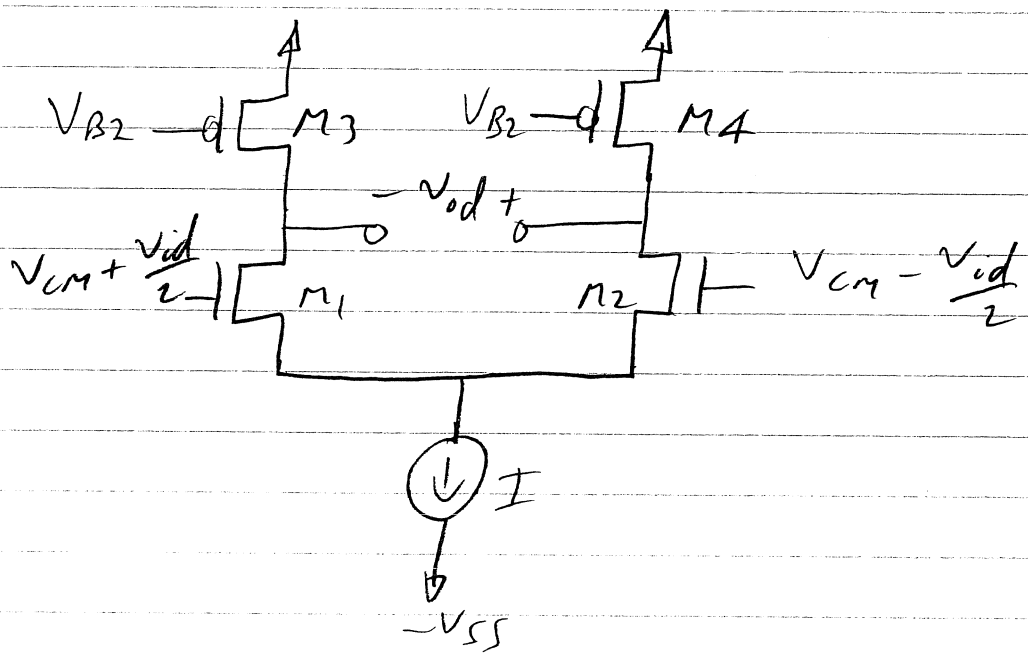 V_B2 M3 V_B2 M4
− v_od +
V_CM + v_id/2 M1 M2 V_CM − v_id/2
I
−V_SS